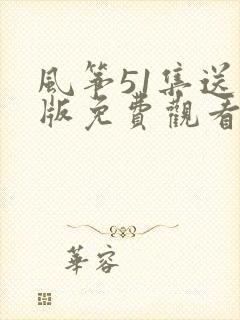 風第51集送
版免費觀看
華容